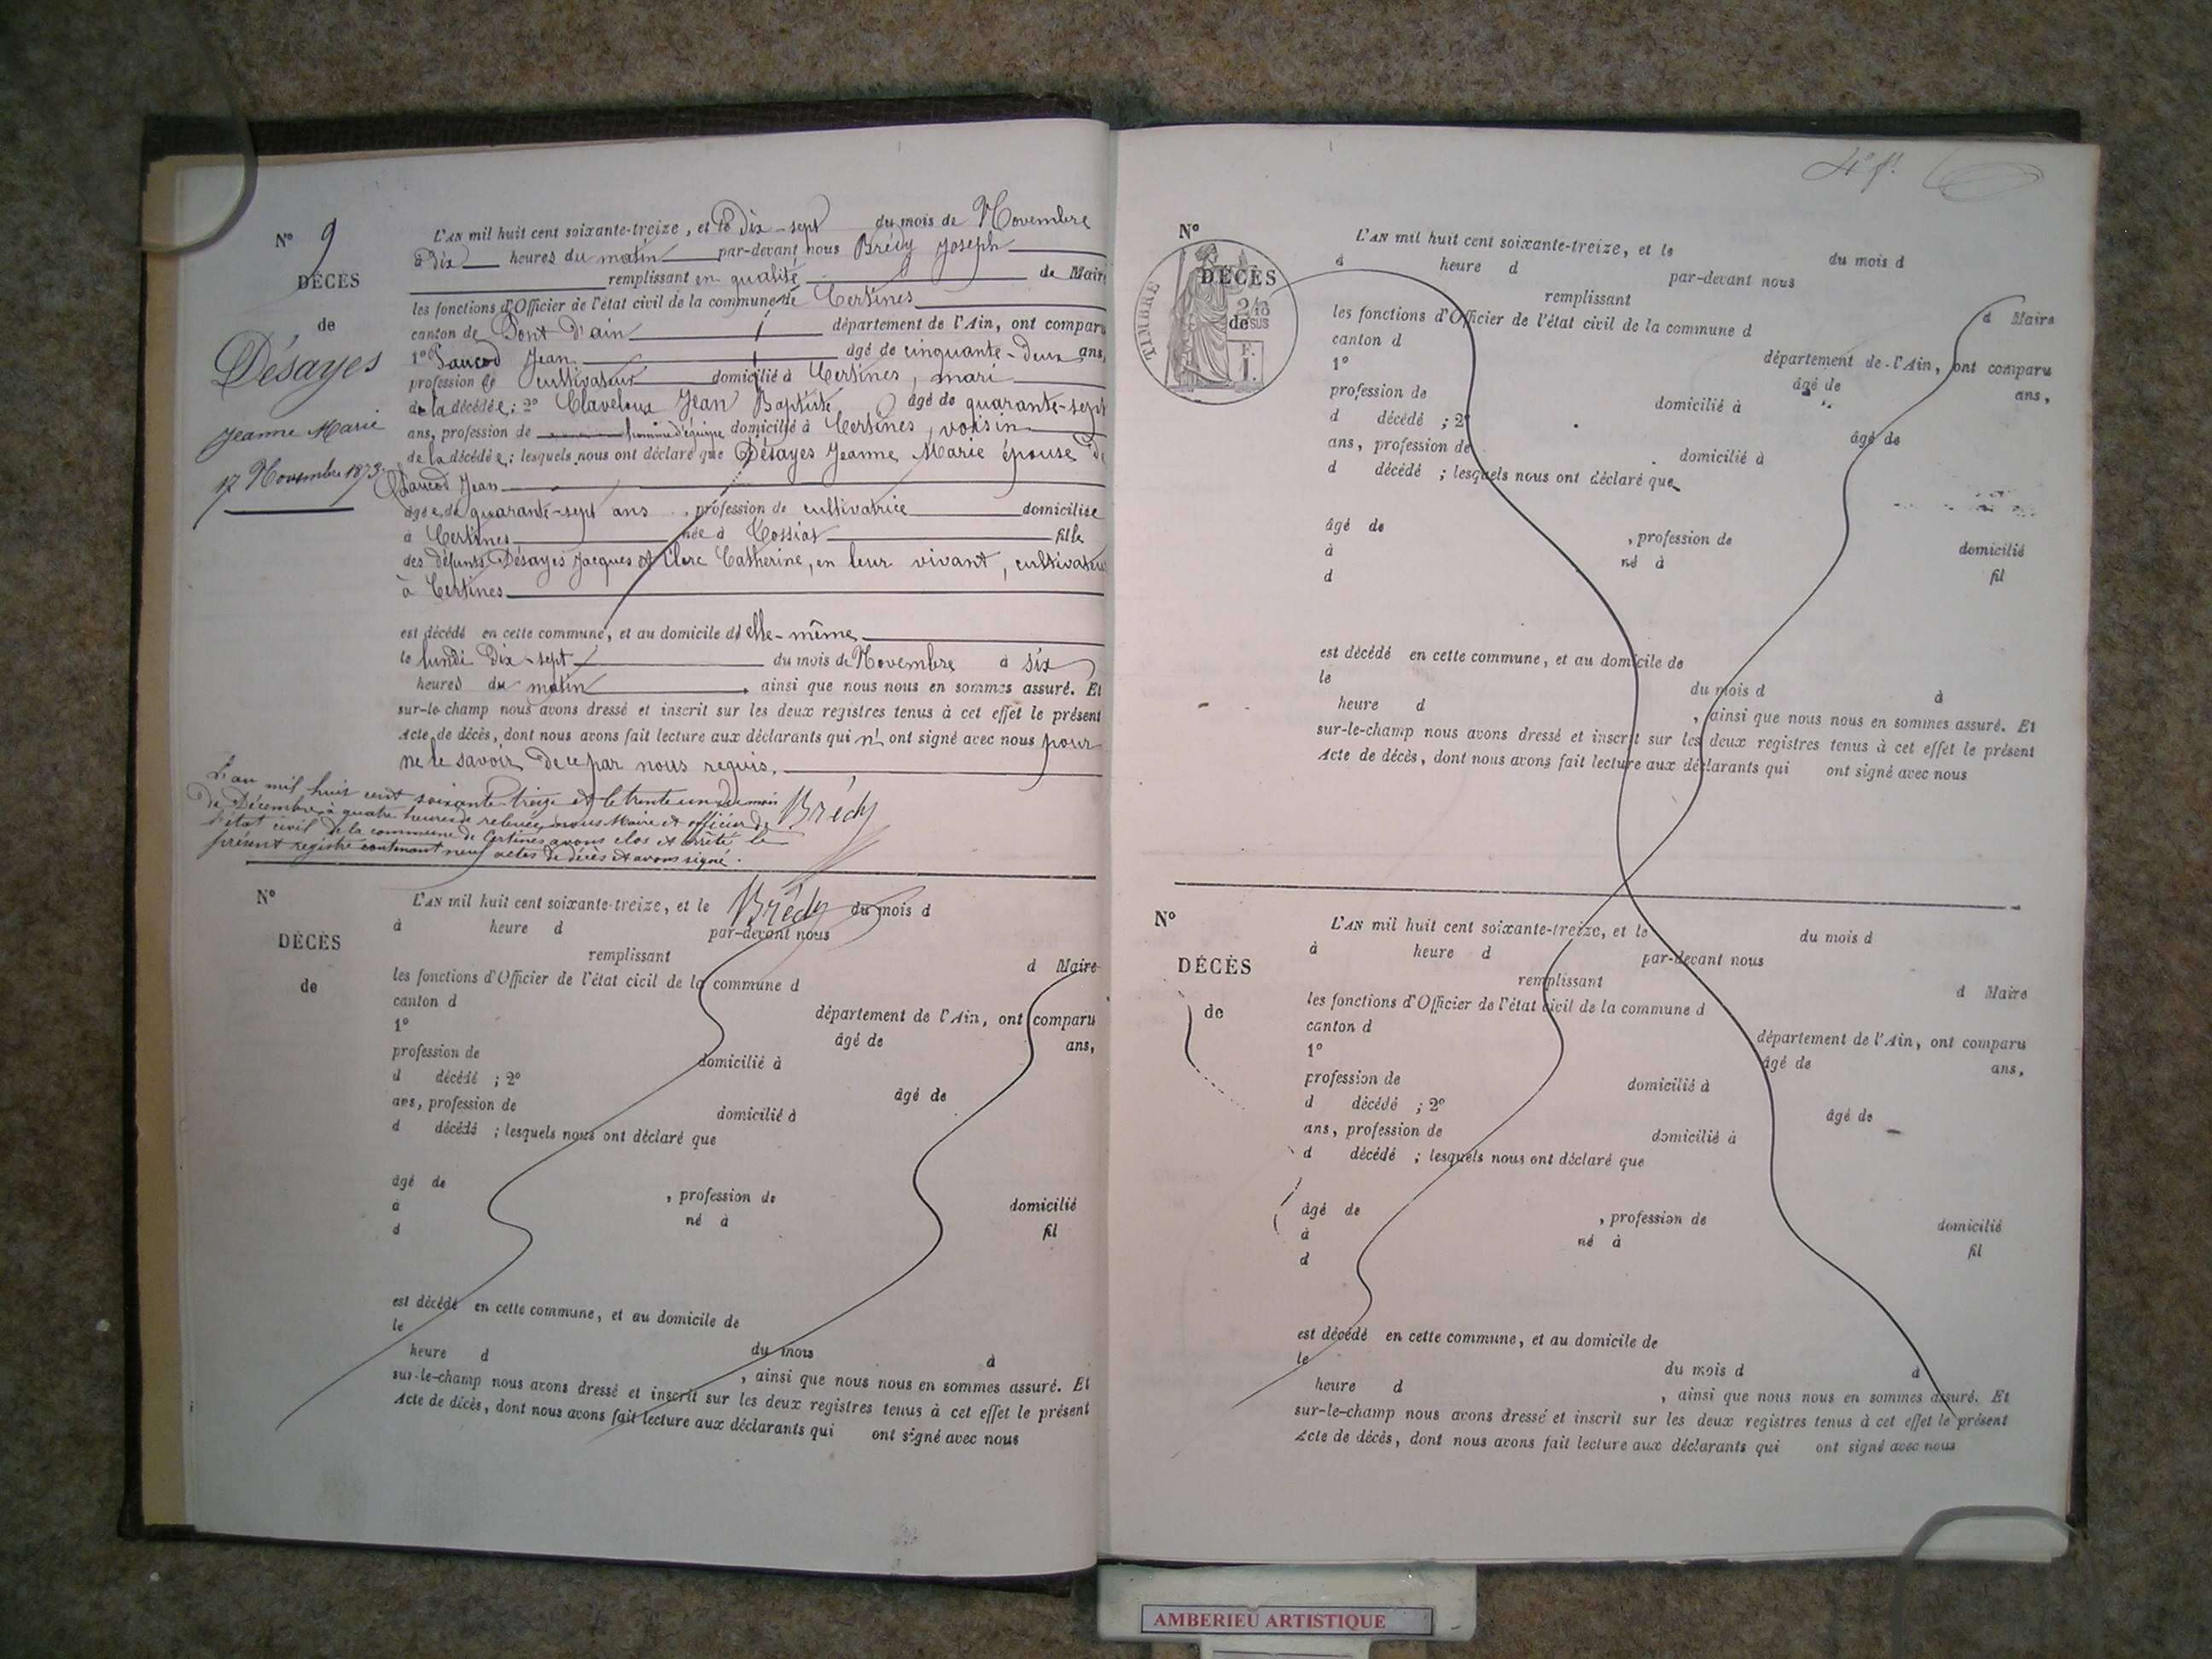 N° 9
DÉCÈS
de
Désayes
Jeanne Marie
17 Novembre 1873.
L'AN mil huit cent soixante-treize, et le Dix-sept du mois de Novembre
à Dix heures du matin par-devant nous Brédy Joseph
remplissant en qualité de Maire
les fonctions d'Officier de l'état civil de la commune de Certines
canton de Pont d'ain département de l'Ain, ont comparu
1° Paucod Jean âgé de cinquante-deux ans,
profession de cultivateur domicilié à Certines, mari
de la décédée ; 2° Claveloux Jean Baptiste âgé de quarante-sept
ans, profession de homme d'équipe domicilié à Certines, voisin
de la décédée ; lesquels nous ont déclaré que Désayes Jeanne Marie épouse de
Paucod Jean
âgée de quarante-sept ans, profession de cultivatrice domiciliée
à Certines née à Tossiat fille
des défunts Désayes Jacques et Clerc Catherine, en leur vivant, cultivateurs
à Certines
est décédé en cette commune, et au domicile d'elle-même
le lundi Dix-sept du mois de Novembre à six
heures du matin, ainsi que nous nous en sommes assuré. Et
sur-le-champ nous avons dressé et inscrit sur les deux registres tenus à cet effet le présent
Acte de décès, dont nous avons fait lecture aux déclarants qui n' ont signé avec nous pour
ne le savoir de ce par nous requis.
Brédy
L'an mil huit cent soixante-treize et le trente un du mois
de Décembre à quatre heures de relevée, nous Maire et officier de
l'état civil de la commune de Certines avons clos et arrêté le
présent registre contenant neuf actes de décès et avons signé.
Brédy
N°
DÉCÈS
de
L'AN mil huit cent soixante-treize, et le du mois d
à heure d par-devant nous
remplissant d Maire
les fonctions d'Officier de l'état cicil de la commune d
canton d département de l'Ain, ont comparu
1° âgé de ans,
profession de domicilié à
d décédé ; 2° âgé de
ans, profession de domicilié à
d décédé ; lesquels nous ont déclaré que
âgé de , profession de domicilié
à né à fil
d
est décédé en cette commune, et au domicile de
le du mois à
heure d , ainsi que nous nous en sommes assuré. Et
sur-le-champ nous avons dressé et inscrit sur les deux registres tenus à cet effet le présent
Acte de décès, dont nous avons fait lecture aux déclarants qui ont signé avec nous
N°
DÉCÈS
de
TIMBRE
2/10
SUS
F.
1.
L'AN mil huit cent soixante-treize, et le du mois d
à heure d par-devant nous
remplissant d Maire
les fonctions d'Officier de l'état civil de la commune d
canton d département de l'Ain, ont comparu
1° âgé de ans,
profession de domicilié à
d décédé ; 2° âgé de
ans, profession de domicilié à
d décédé ; lesquels nous ont déclaré que
âgé de , profession de domicilié
à né à fil
d
est décédé en cette commune, et au domicile de
le du mois d à
heure d , ainsi que nous nous en sommes assuré. Et
sur-le-champ nous avons dressé et inscrit sur les deux registres tenus à cet effet le présent
Acte de décès, dont nous avons fait lecture aux déclarants qui ont signé avec nous
N°
DÉCÈS
de
L'AN mil huit cent soixante-treize, et le du mois d
à heure d par-devant nous
remplissant d Maire
les fonctions d'Officier de l'état civil de la commune d
canton d département de l'Ain, ont comparu
1° âgé de ans,
profession de domicilié à
d décédé ; 2° âgé de
ans, profession de domicilié à
d décédé ; lesquels nous ont déclaré que
âgé de , profession de domicilié
à né à fil
d
est décédé en cette commune, et au domicile de
le du mois d à
heure d , ainsi que nous nous en sommes assuré. Et
sur-le-champ nous avons dressé et inscrit sur les deux registres tenus à cet effet le présent
Acte de décès, dont nous avons fait lecture aux déclarants qui ont signé avec nous
AMBERIEU ARTISTIQUE